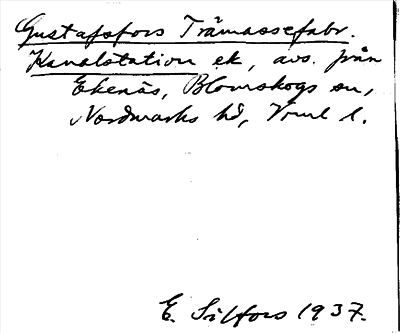 Gustafsfors Trämassefabr.
Kanalstation ek, avs. från
Ekenäs, Blomskogs sn,
Nordmarks hd, Vrml l.
E. Silfors 1937.